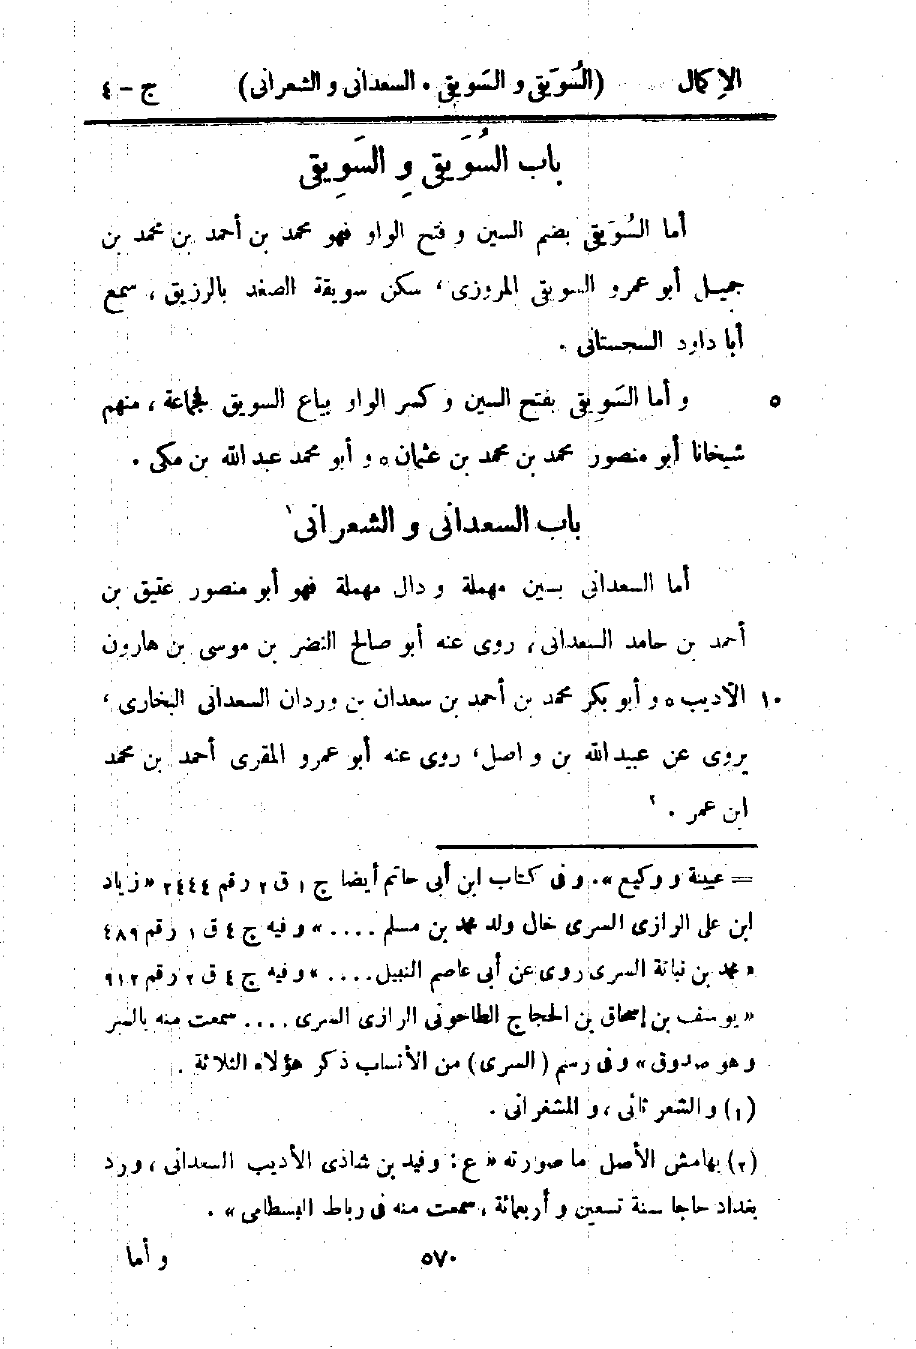 الإكمال (السُوَيقي و السَويقي . السعدانى و الشعرانى) ج - ٤
باب السُوَيقي و السَوِيقي
أما السُوَيقي بضم السين و فتح الواو فهو محمد بن أحمد بن محمد بن
جميل أبو عمرو السويقي المروزى ، سكن سويقة الصغد بالرزيق ، سمع
أبا داود السجستانى .
٥ و أما السَوِيقي بفتح السين و كسر الواو بياع السويق فجماعة ، منهم
شيخانا أبو منصور محمد بن محمد بن عثمان ٥ و أبو محمد عبد الله بن مكى .
باب السعدانى و الشعرانى ١
أما السعدانى بسين مهملة و دال مهملة فهو أبو منصور عتيق بن
أحمد بن حامد السعدانى ، روى عنه أبو صالح النضر بن موسى بن هارون
١٠ الأديب ٥ و أبو بكر محمد بن أحمد بن سعدان بن وردان السعدانى البخارى ،
يروى عن عبيد الله بن واصل ، روى عنه أبو عمرو المقرى أحمد بن محمد
ابن عمر . ٢
= عيينة و وكيع » . و فى كتاب ابن أبى حاتم أيضا ج ١ ق ٢ رقم ٢٤٤٤ « زياد
ابن على الرازى السرى خال ولد محمد بن مسلم .... » و فيه ج ٤ ق ١ رقم ٤٨٩
« محمد بن نباتة السرى روى عن أبى عاصم النبيل .... » و فيه ج ٤ ق ٢ رقم ٩١٢
« يوسف بن إسحاق بن الحجاج الطاحونى الرازى السرى .... سمعت منه بالسر
و هو صدوق » و فى رسم (السرى) من الأنساب ذكر هؤلاء الثلاثة .
(١) و الشعرثانى ، و المشغرانى .
(٢) بهامش الأصل ما صورته « ع : وفيد بن شاذى الأديب السعدانى ، ورد
بغداد حاجا سنة تسعين و أربعمائة ، سمعت منه فى رباط البسطامى » .
٥٧٠ و أما